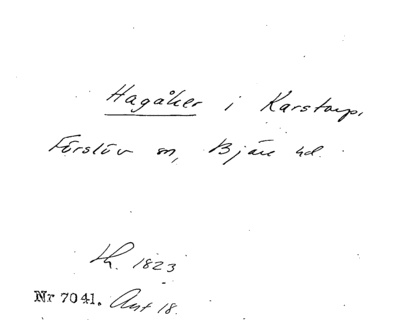 Hagåker i Karstorp,
Förslöv sn, Bjäre hd.
Lh. 1823
Nr 7041. Ant 18.